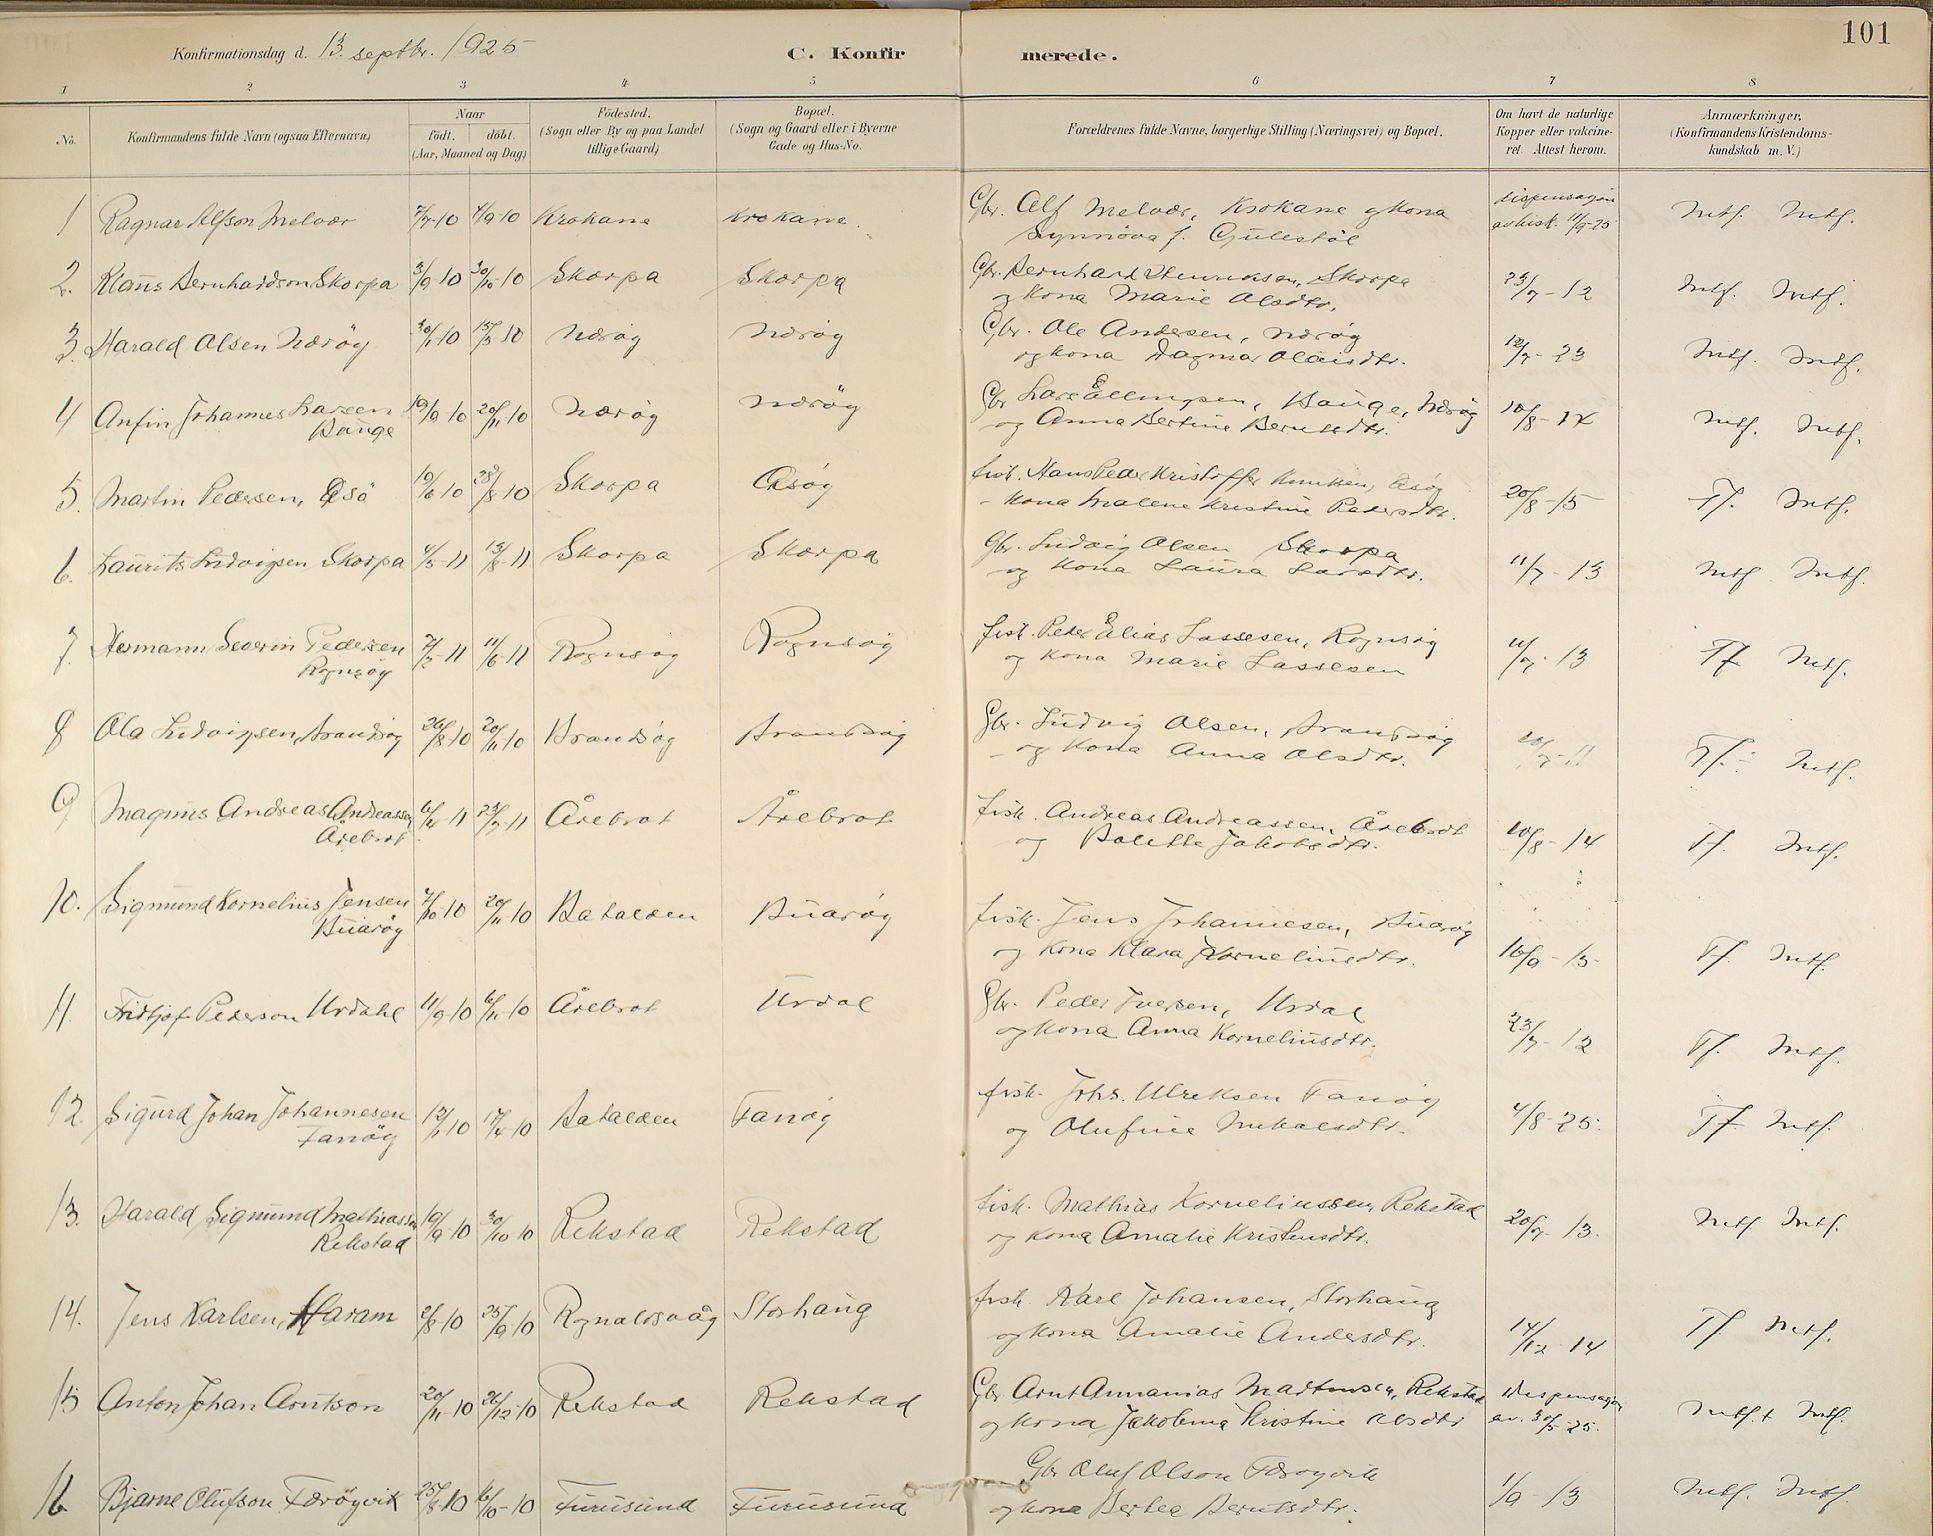 101
Konfirmationsdag d. 13. septbr. 1925
C. Konfirmerede.
1 2 3 4 5 6 7 8
No.
Konfirmandens fulde Navn (ogsaa Efternavn)
Naar
født. døbt.
(Aar, Maaned og Dag)
Fødested.
(Sogn eller By og paa Landet
tillige Gaard)
Bopæl.
(Sogn og Gaard eller i Byerne
Gade og Hus-No.
Forældrenes fulde Navne, borgerlige Stilling (Næringsvei) og Bopæl.
Om havt de naturlige
Kopper eller vakcine-
ret. Attest herom.
Anmærkninger,
(Konfirmandens Kristendoms-
kundskab m. V.)
1 Ragnar Alfson Melvær 7/7-10 4/9-10 Krokane Krokane. Gbr. Alf Melvær, Krokane og kona dispensasjon Mtf. Mtf.
Synnøva f. Gulestøl av bisk. 11/9-25
2. Klaus Bernhardson Skorpa 3/9-10 30/10-10 Skorpa Skorpa Gbr. Bernhard Henriksen, Skorpa 23/7-12 Mtf. Mtf.
og kona Marie Olsdtr.
3. Harald Olsen Nærøy 30/1-10 15/3-10 Nærøy Nærøy Gbr. Ole Andersen, Nærøy 12/7-23 Mtf. Mtf.
og kona Dagmar Olaisdtr.
4 Anfin Johannes Larsen 19/9-10 20/11-10 Nærøy Nærøy Gbr Lars Ellingsen, Hauge, Nærøy 10/8-14 Mtf. Mtf.
Hauge og Anna Bertine Berntsdtr.
5. Martin Pedersen, Askø 19/6-10 28/8-10 Skorpa fisk. Hans Peder Kristoffer Knutsen, 20/8-15 Tf. Mtf.
- kona Malene Kristine Pedersdtr.
6. Laurits Ludvigsen Skorpa 4/5-11 13/8-11 Skorpa Skorpa Gbr. Ludvig Olsen Skorpa 11/7-13 Mtf Mtf.
og kona Laura Larsdtr.
7. Hermann Severin Pedersen 7/2-11 11/6-11 Rognsøy Rognsøy fisk. Peder Elias Lassesen, Rognsøy 11/7-13 Tf Mtf.
Rognsøy og kona Marie Lassesen
8 Ola Ludvigsen, Brandsøy 26/8-10 20/11-10 Brandsøy Brandsøy Gbr. Ludvig Olsen, Brandsøy Tf. Mtf.
- og kona Anna Olsdtr.
9 Magnus Andreas Andreassen 6/4-11 23/7-11 Årebrot Årebrot fisk. Andreas Andreassen, Årebrot 10/8-14 Tf. Mtf.
Årebrot og Bolette Jakobsdtr.
10. Sigmund Kornelius Jensen 7/10-10 20/11-10 Batalden Buarøy fisk. Jens Johannesen, Buarøy 16/9-13- Tf. Mtf.
Buarøy og kona Klara Korneliusdtr.
11. Fridtjof Pederson Urdahl 11/9-10 6/11-10 Årebrot Urdal Gbr. Peder Iversen, Urdal 23/7-12 Tf. Mtf.
og kona Anna Korneliusdtr.
12. Sigurd Johan Johannesen 12/1-10 17/4-10 Batalden Fanøy fisk. Johs. Ulriksen Fanøy 4/8-25. Tf Mtf.
Fanøy og Olufine Mikalsdtr.
13. Harald Sigmund Mathiassen 19/9-10 30/10-10 Rekstad Rekstad fisk. Mathias Korneliussen, Rekstad 20/7-13. Mtf Mtf.
Rekstad og kona Amalie Kristensdtr.
14. Jens Karlsen, Haram 2/8-10 25/9-10 Rognaldsvåg Storhaug fisk. Karl Johansen, Storhaug 14/12-14 Tf Mtf.
og kona Amalie Andersdtr.
15 Anton Johan Arntson 20/11-10 26/12-10 Rekstad Rekstad Gbr Arnt Annanias Martinsen, Rekstad dispensasjon Mtf.+ Mtf.
og kona Jakobina Kristine Olsdtr av. 30/5-25.
16. Bjarne Olufson Færøyvik 25/8-10 16/10-10 Furusund Furusund Gbr Oluf Olson Færøyvik 1/9-13 Mtf. Mtf.
og kona Berte Berntsdtr.